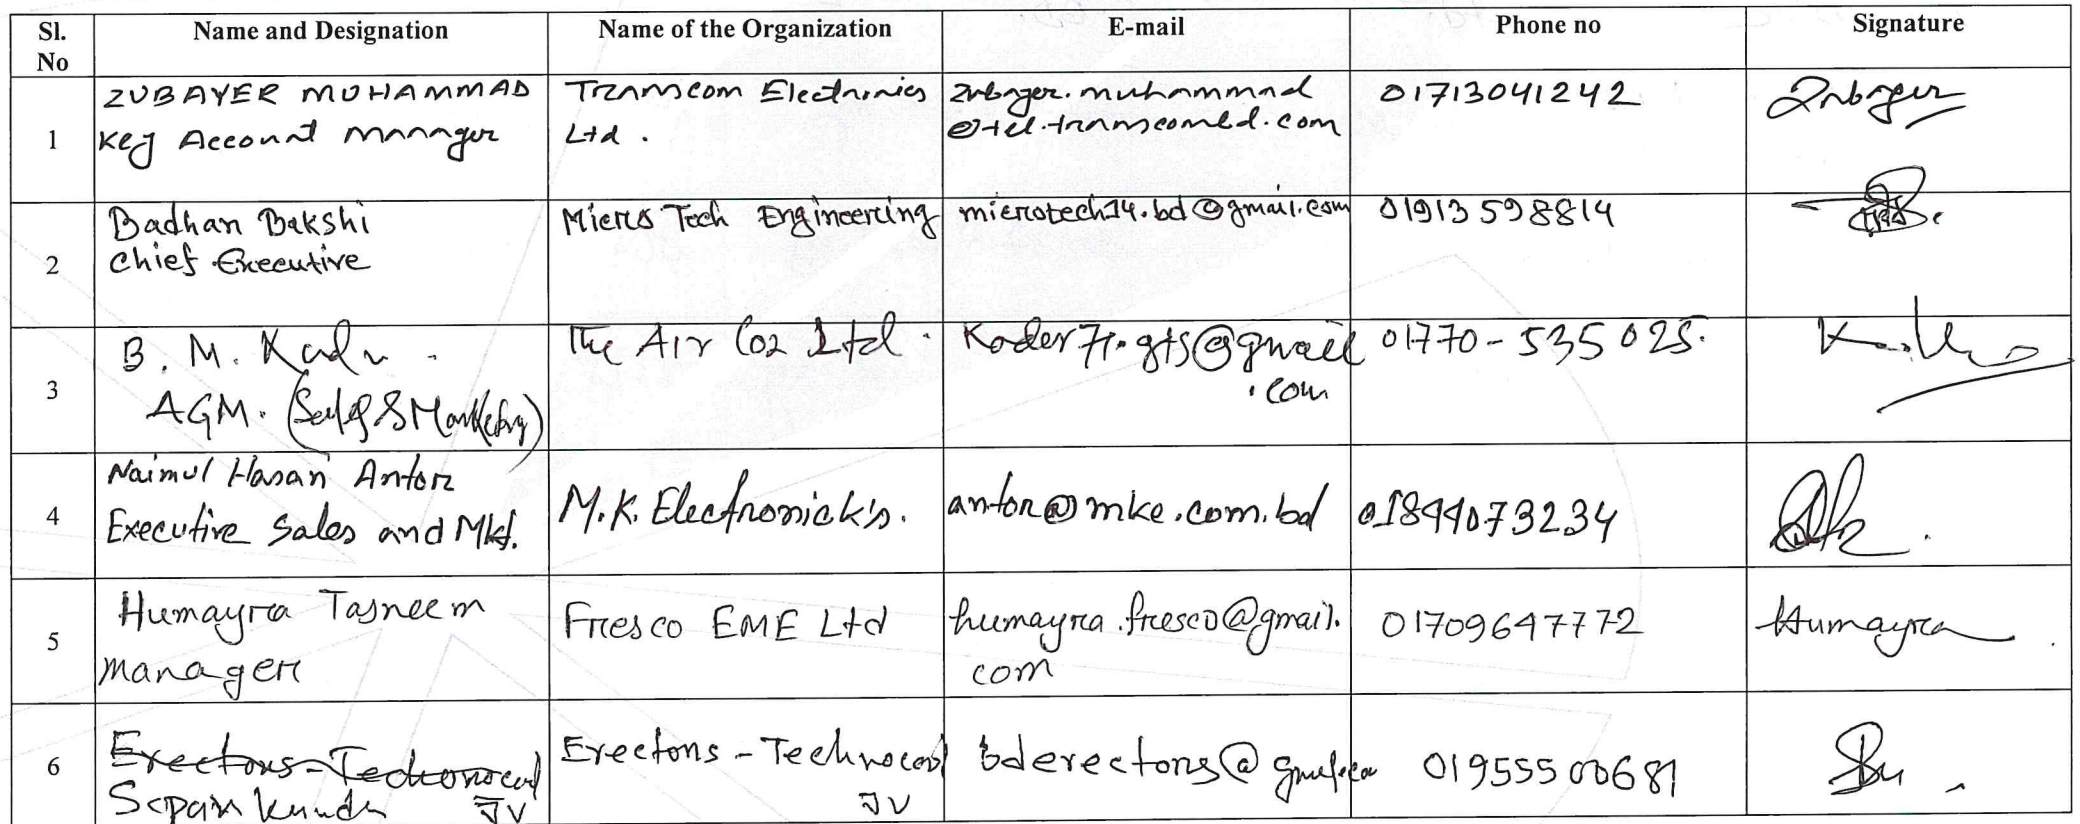 Sl. No
Name and Designation
Name of the Organization
E-mail
Phone no
Signature
1
ZUBAYER MUHAMMAD
Key Account Manager
Transcom Electronics
Ltd.
zubayer.muhammad
@tel.transcombd.com
01713041242
Zubayer
2
Badhan Bakshi
Chief Executive
Micro Tech Engineering
microtech14.bd@gmail.com
01913598814
3
B. M. Kader
AGM. (Sales & Marketing)
The Air Con Ltd.
Kader71.gts@gmail
.com
01770-535025.
4
Naimul Hasan Anton
Executive Sales and Mkt.
M.K. Electronick's.
anton@mke.com.bd
01844073234
5
Humayra Tasneem
Manager
Fresco EME Ltd
humayra.fresco@gmail.
com
01709647772
Humayra
6
Erectors-Technocad
Sapan Kundu JV
Erectors - Technocad
JV
bderectors@gmail.com
01955500681